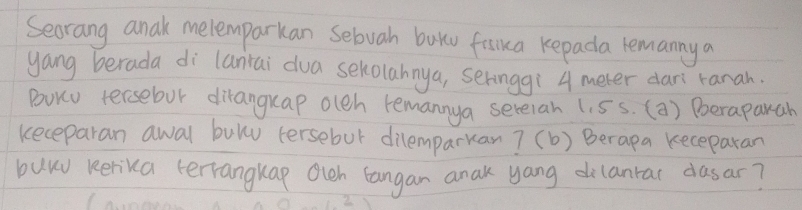 Seorang anak melemparkan sebuah buku fisika kepada temannya
yang berada di lantai dua sekolahnya, setinggi 4 meter dari tanah.
Buku tersebut ditangkap oleh temannya setelah 1,5 s. (a) Berapakah
kecepatan awal buku tersebut dilemparkan? (b) Berapa kecepatan
buku ketika tertangkap oleh tangan anak yang dilantai dasar?